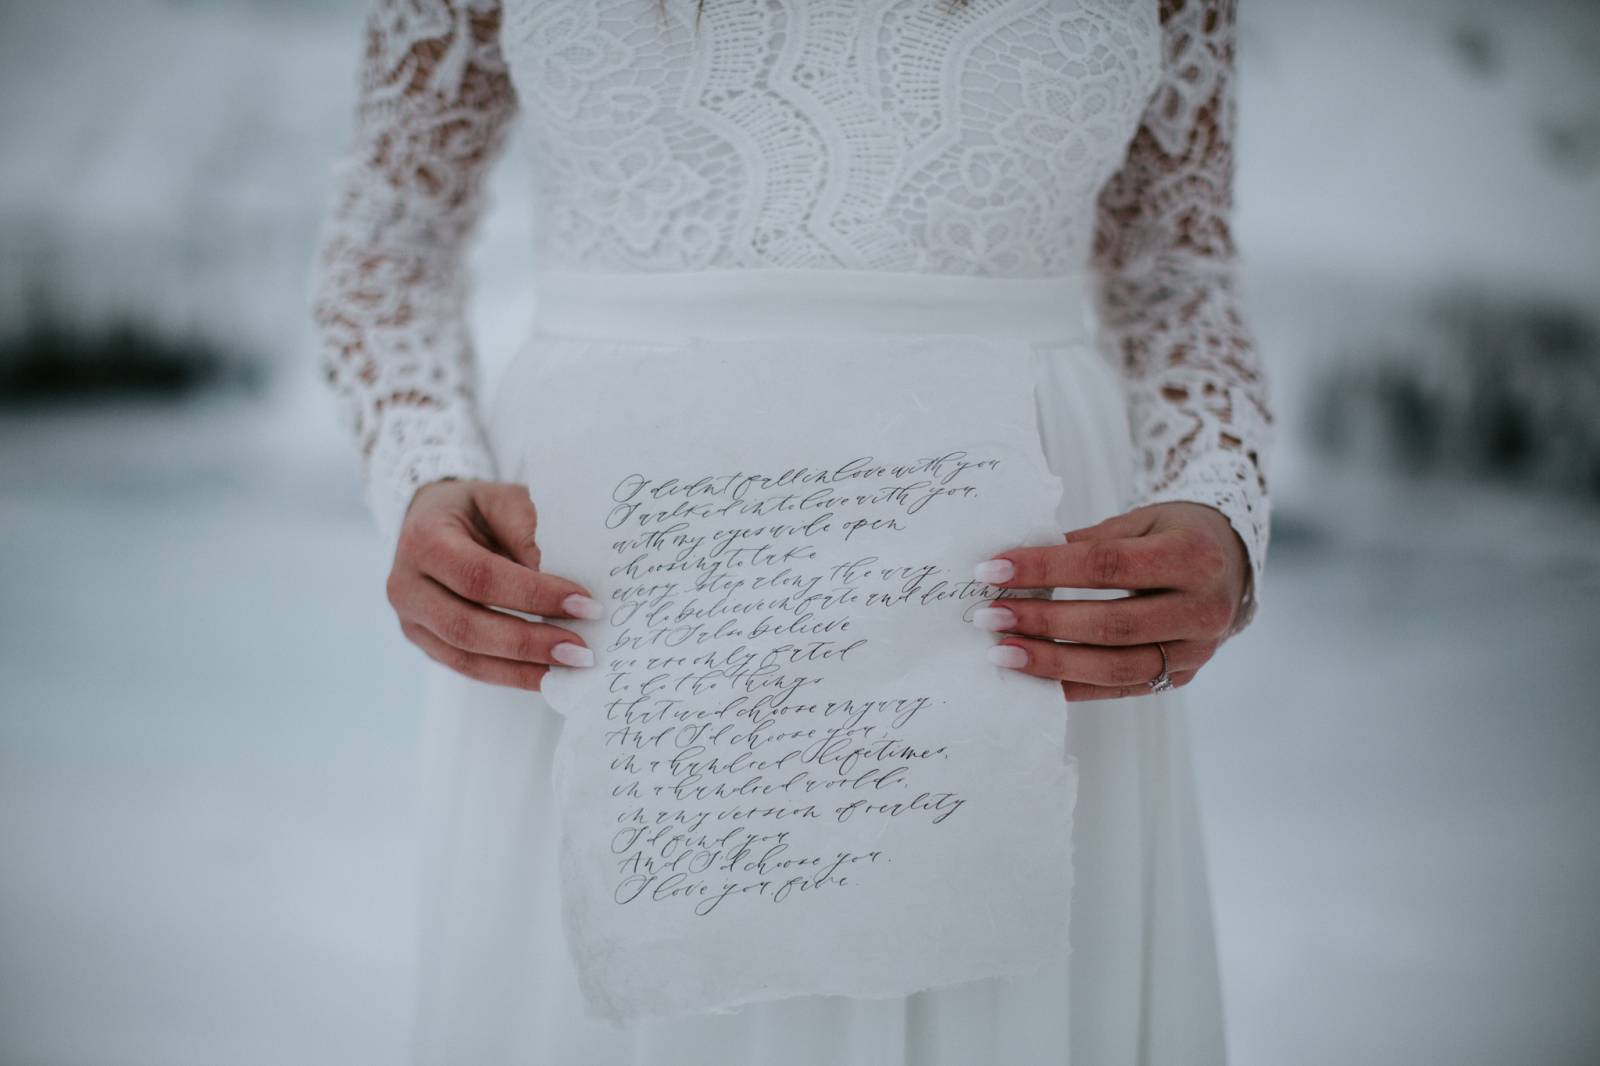 I didn't fall in love with you
I walked into love with you,
with my eyes wide open
choosing to take
every step along the way.
I do believe in fate and destiny,
but I also believe
we are only fated
to do the things
that we'd choose anyway.
And I'd choose you,
in a hundred lifetimes,
in a hundred worlds,
in any version of reality
I'd find you
And I'd choose you.
I love you, five.